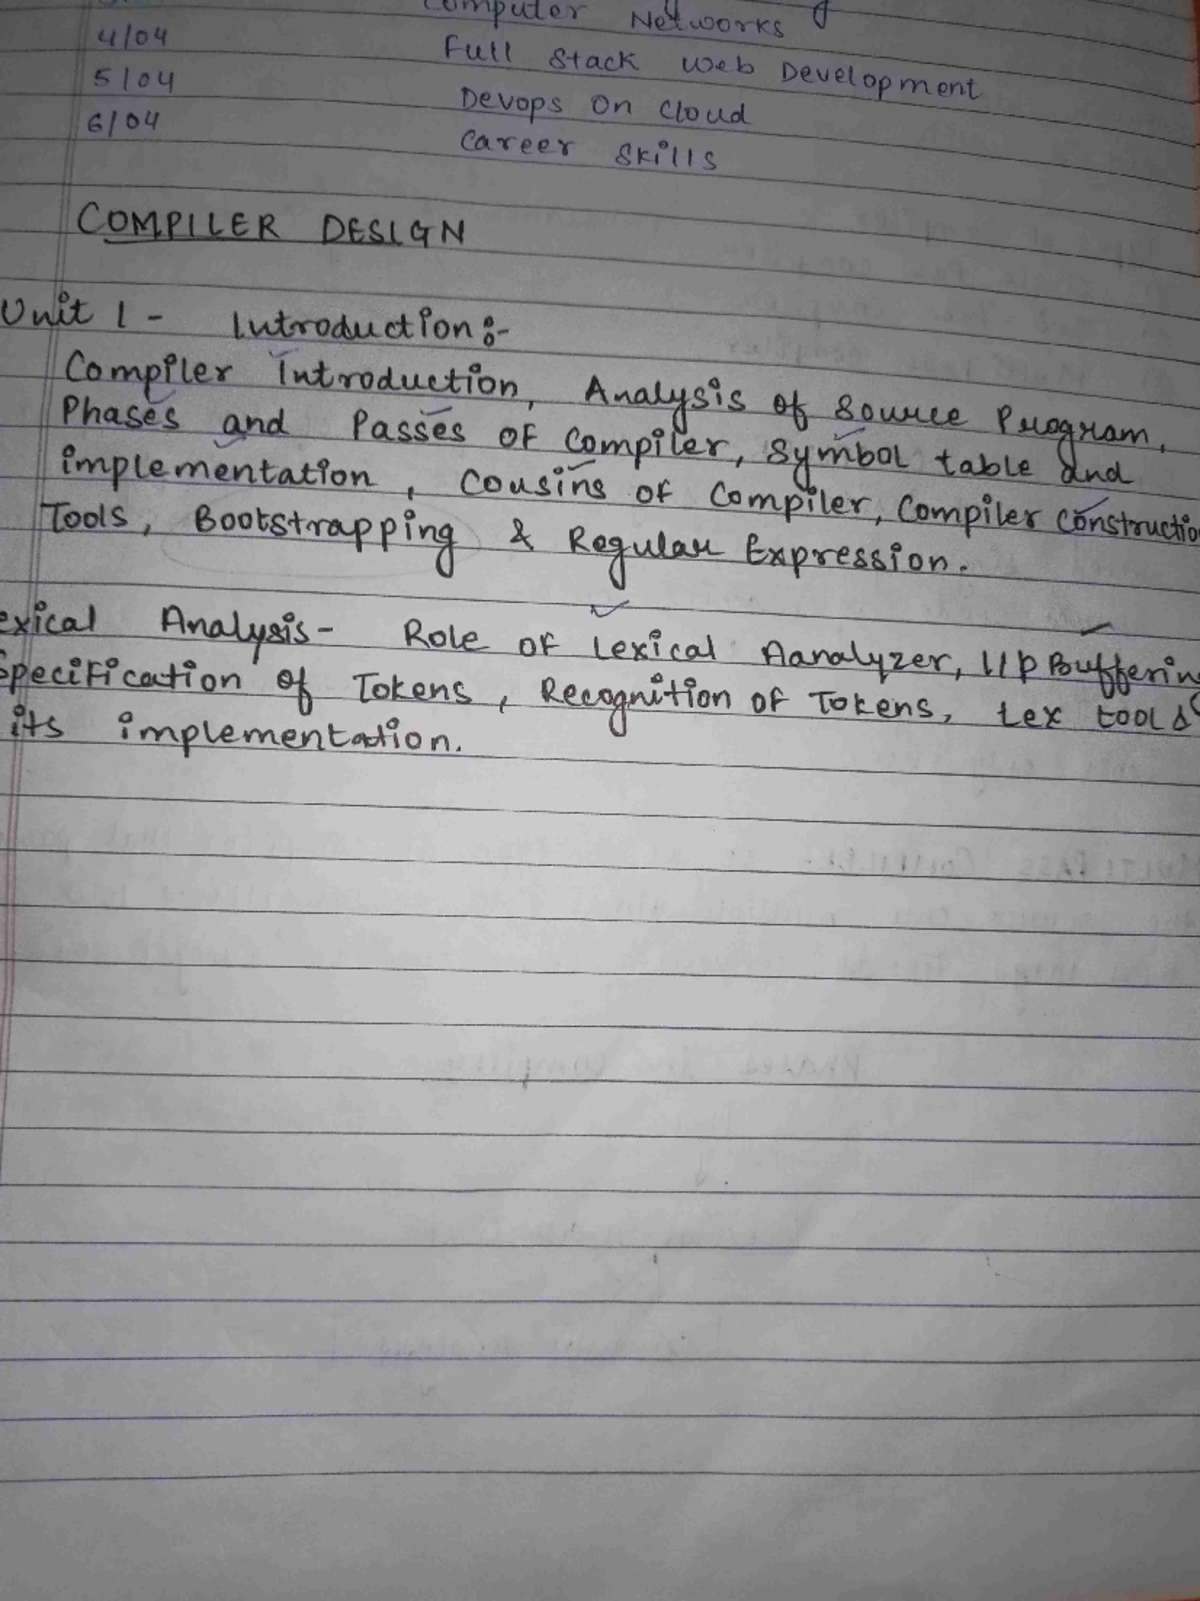 Computer Networks
4/04 Full Stack Web Development
5/04 Devops On Cloud
6/04 Career Skills
COMPILER DESIGN
Unit 1 - Introduction :-
Compiler Introduction, Analysis of Source Program,
Phases and Passes of Compiler, Symbol table and
implementation, Cousins of Compiler, Compiler Constructio
Tools, Bootstrapping & Regular Expression.
exical Analysis - Role of Lexical Aanalyzer, I/p Bufferin
Specification of Tokens, Recognition of Tokens, Lex tool &
its implementation.